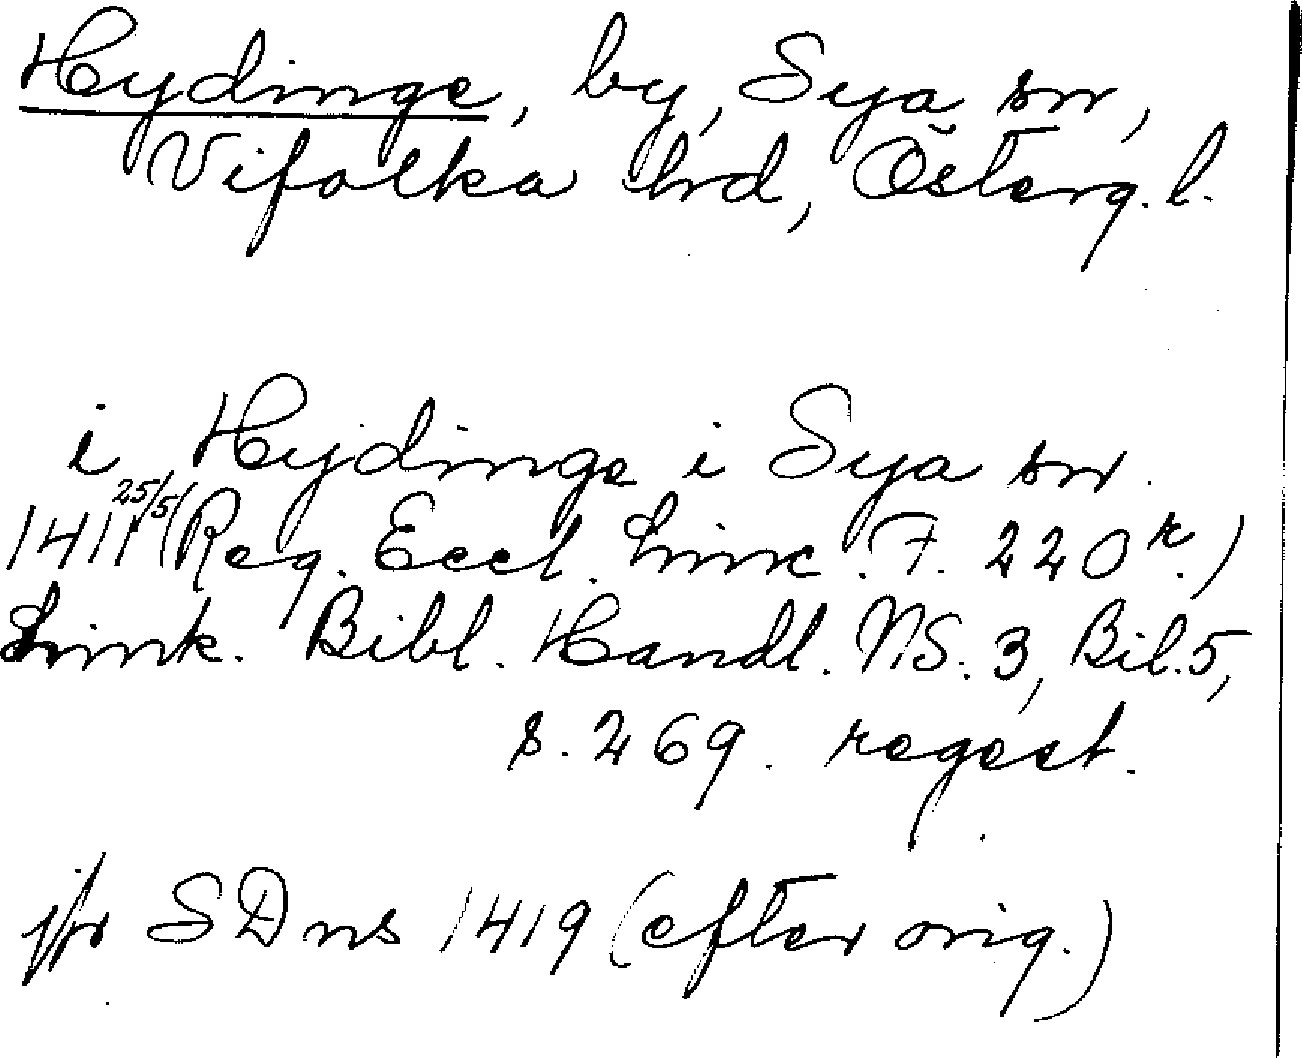 Hydinge, by, Sya sn,
Vifolka hrd, Österg. l.
i Hydinge i Sya sn.
1411 25/5 (Reg. Eccl. Linc. F. 220 r.)
Link. Bibl. Handl. NS. 3, Bil. 5,
s. 269. regest.
jfr SDns 1419 (efter orig.)